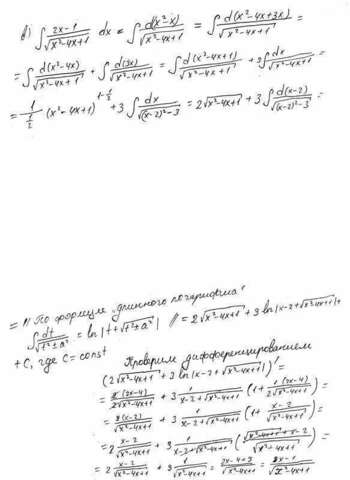 в) ∫ (2x-1)/√(x²-4x+1) dx = ∫ d(x²-x)/√(x²-4x+1) = ∫ d(x²-4x+3x)/√(x²-4x+1) =
= ∫ d(x²-4x)/√(x²-4x+1) + ∫ d(3x)/√(x²-4x+1) = ∫ d(x²-4x+1)/√(x²-4x+1) + 3∫ dx/√(x²-4x+1) =
= 1/(1/2) (x²-4x+1)^(1-1/2) + 3∫ dx/√((x-2)²-3) = 2√(x²-4x+1) + 3∫ d(x-2)/√((x-2)²-3) =
= // По формуле „длинного логарифма"
∫ dt/√(t²±a²) = ln|t+√(t²±a²)| // = 2√(x²-4x+1) + 3 ln|x-2+√(x²-4x+1)| +
+ C, где C = const
Проверим дифференцированием
(2√(x²-4x+1) + 3 ln|x-2+√(x²-4x+1)|)' =
= 2(2x-4)/2√(x²-4x+1) + 3 1/(x-2+√(x²-4x+1)) (1 + 1(2x-4)/2√(x²-4x+1)) =
= 2(x-2)/√(x²-4x+1) + 3 1/(x-2+√(x²-4x+1)) (1 + (x-2)/√(x²-4x+1)) =
= 2 (x-2)/√(x²-4x+1) + 3 1/(x-2+√(x²-4x+1)) ((√(x²-4x+1)+x-2)/√(x²-4x+1)) =
= 2 (x-2)/√(x²-4x+1) + 3 1/√(x²-4x+1) = (2x-4+3)/√(x²-4x+1) = (2x-1)/√(x²-4x+1)